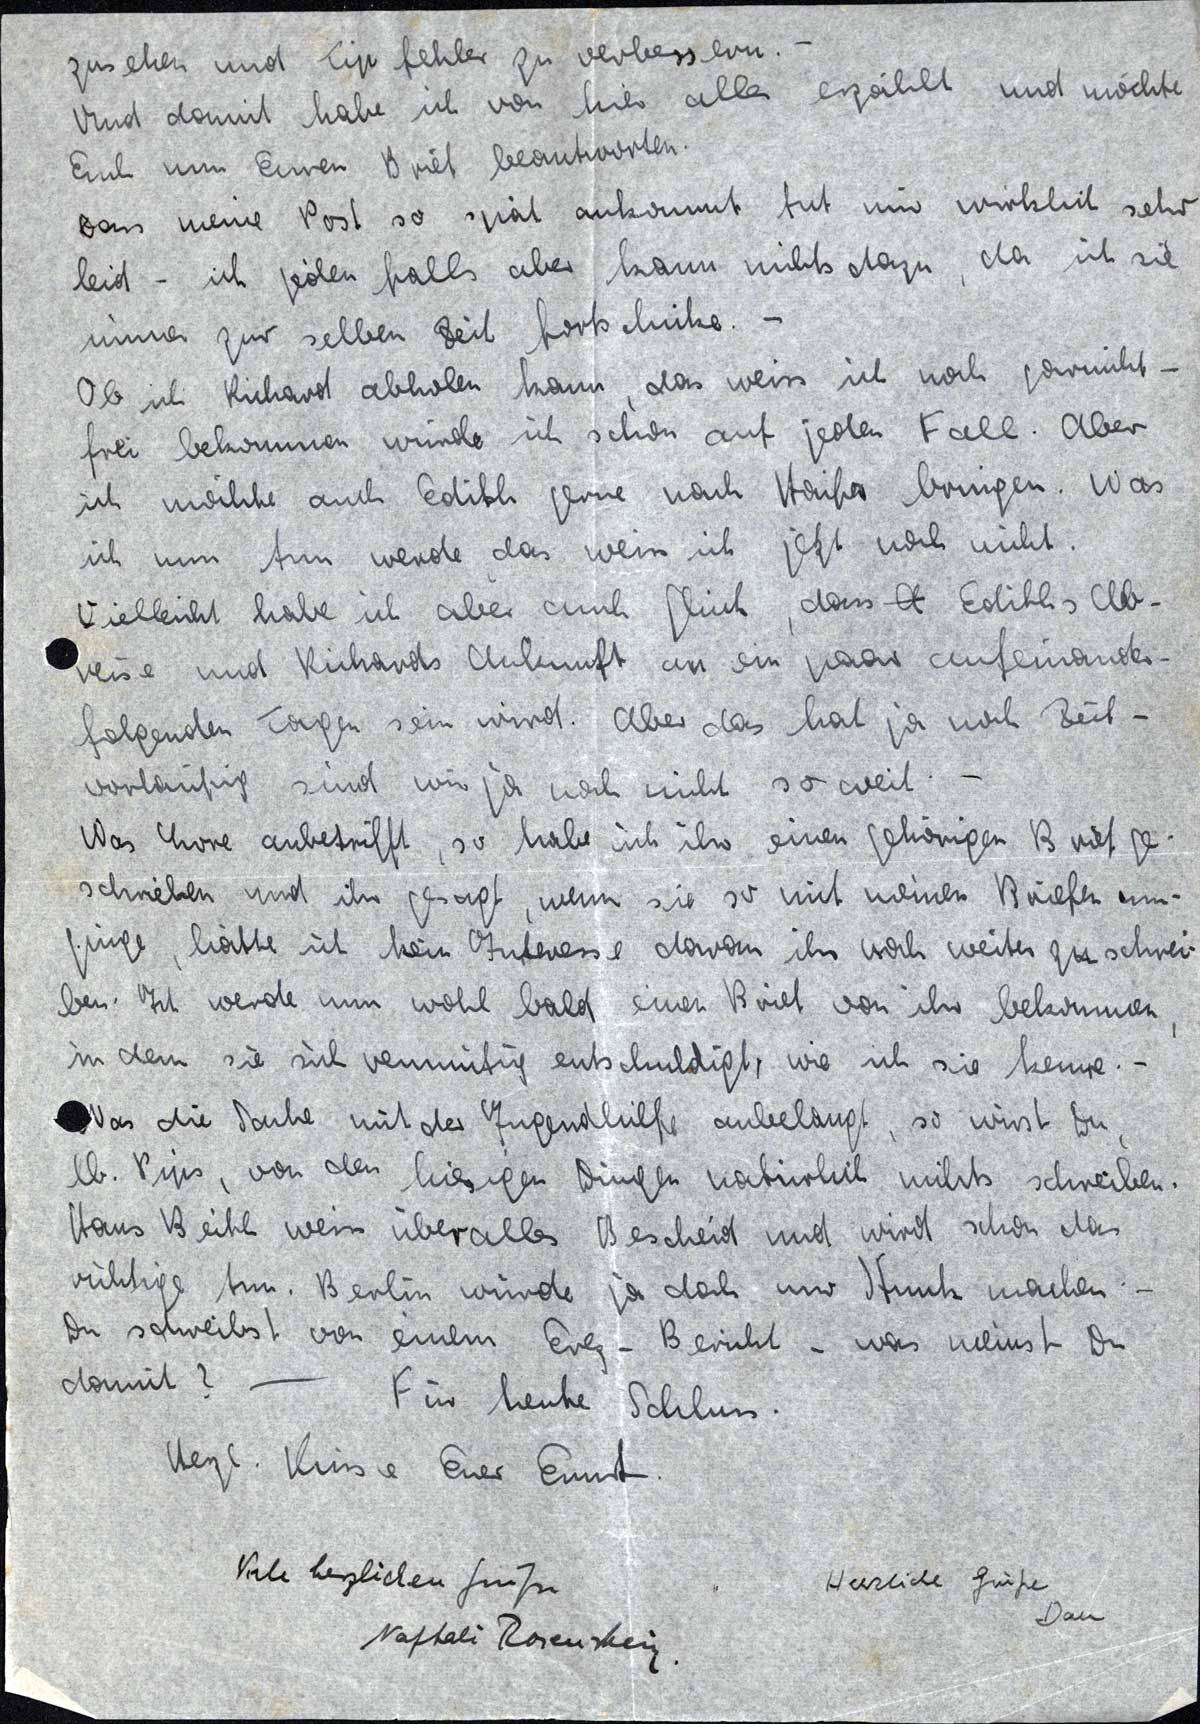 zusehen und Tip fehler zu verbessern. –
Und damit habe ich von hier alles erzählt und möchte
Euch nun Euren Brief beantworten.
Dass meine Post so spät ankommt tut mir wirklich sehr
leid – ich jeden falls aber kann nichts dazu, da ich sie
immer zur selben Zeit fortschicke. –
Ob ich Richard abholen kann, das weiss ich noch garnicht –
frei bekommen würde ich schon auf jeden Fall. Aber
ich möchte auch Edith gerne nach Haifa bringen. Was
ich nun tun werde, das weiss ich jetzt noch nicht.
Vielleicht habe ich aber auch Glück, dass Ediths Ab-
reise und Richards Ankunft an ein paar aufeinander-
folgenden Tagen sein wird. Aber das hat ja noch Zeit –
vorläufig sind wir ja noch nicht so weit. –
Was Lore anbetrifft, so habe ich ihr einen gehörigen Brief ge-
schrieben und ihr gesagt, wenn sie so mit meinen Briefen um-
ginge, hätte ich kein Interesse daran ihr noch weiter zu schrei-
ben. Ich werde nun wohl bald einen Brief von ihr bekommen,
in dem sie sich reumütig entschuldigt, wie ich sie kenne. –
Was die Sache mit der Jugendhilfe anbelangt, so wirst Du,
lb. Pips, von den hiesigen Dingen natürlich nichts schreiben.
Hans Beith weiss über alles Bescheid und wird schon das
richtige tun. Berlin würde ja doch nur machen. –
Du schreibst von einem Erez – Bericht – was meinst Du
damit? — Für heute Schluss.
Herzl. Küsse Euer Ernst.
Viele herzlichen Grüße
Naftali Rosenzweig.
Herzliche Grüße
Dan